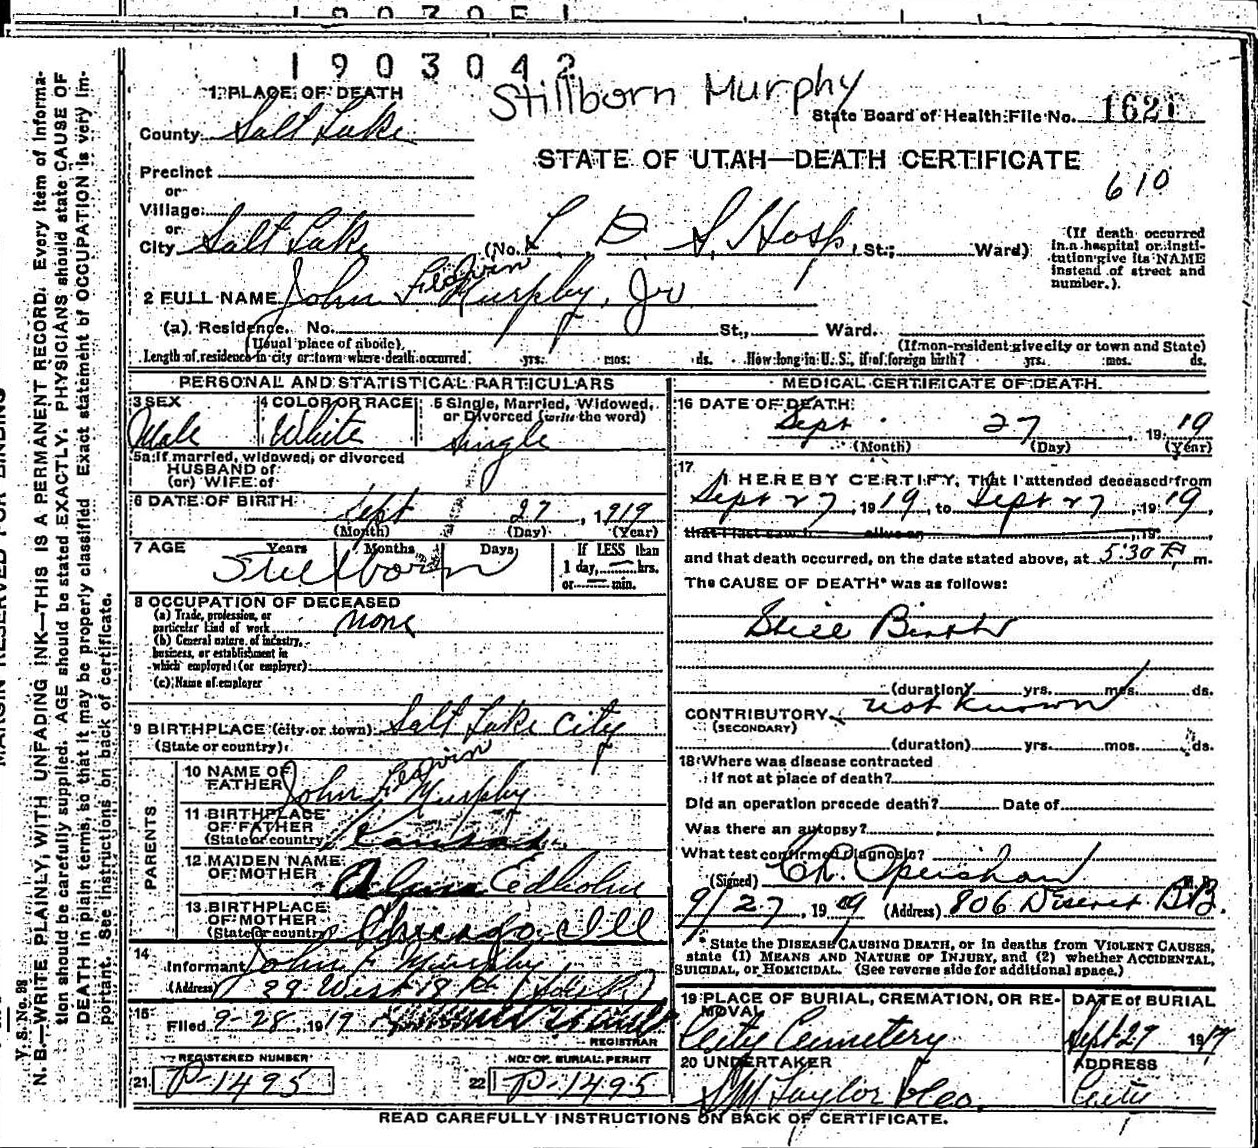 1903042
Stillborn Murphy
1. PLACE OF DEATH
State Board of Health File No. 1621
County Salt Lake
STATE OF UTAH—DEATH CERTIFICATE
610
Precinct
or
Village
or
City Salt Lake (No. L. D. S. Hosp, St.; Ward)
(If death occurred in a hospital or institution give its NAME instead of street and number.)
2 FULL NAME John Murphy, Jr
(a) Residence. No. St., Ward.
(Usual place of abode) (If non-resident give city or town and State)
Length of residence in city or town where death occurred yrs. mos. ds. How long in U. S., if of foreign birth? yrs. mos. ds.
PERSONAL AND STATISTICAL PARTICULARS
3 SEX Male
4 COLOR OR RACE White
5 Single, Married, Widowed, or Divorced (write the word) Single
5a If married, widowed, or divorced
HUSBAND of
(or) WIFE of
6 DATE OF BIRTH Sept 27, 1919
(Month) (Day) (Year)
7 AGE Years Months Days
Stillborn
If LESS than
1 day, hrs.
or min.
8 OCCUPATION OF DECEASED
(a) Trade, profession, or
particular kind of work none
(b) General nature of industry,
business, or establishment in
which employed (or employer)
(c) Name of employer
9 BIRTHPLACE (city or town) Salt Lake City
(State or country)
PARENTS
10 NAME OF FATHER John Murphy
11 BIRTHPLACE OF FATHER (State or country) Kansas
12 MAIDEN NAME OF MOTHER Edholm
13 BIRTHPLACE OF MOTHER (State or country) Chicago Ill
14
Informant John F Murphy
(Address) 39 West
15
Filed 9-28, 1919
REGISTRAR
REGISTERED NUMBER
21 P-1495
NO. OF BURIAL PERMIT
22 P-1495
MEDICAL CERTIFICATE OF DEATH
16 DATE OF DEATH
Sept 27, 1919
(Month) (Day) (Year)
17
I HEREBY CERTIFY, That I attended deceased from
Sept 27, 1919, to Sept 27, 1919,
that I last saw h alive on , 19
and that death occurred, on the date stated above, at 5:30 P. m.
The CAUSE OF DEATH* was as follows:
Still Birth
(duration) yrs. mos. ds.
CONTRIBUTORY not known
(SECONDARY)
(duration) yrs. mos. ds.
18 Where was disease contracted
if not at place of death?
Did an operation precede death? Date of
Was there an autopsy?
What test confirmed diagnosis?
(Signed)
9/27, 19 (Address) 806 Deseret
* State the DISEASE CAUSING DEATH, or in deaths from VIOLENT CAUSES,
state (1) MEANS AND NATURE OF INJURY, and (2) whether ACCIDENTAL,
SUICIDAL, or HOMICIDAL. (See reverse side for additional space.)
19 PLACE OF BURIAL, CREMATION, OR REMOVAL
City Cemetery
DATE of BURIAL
Sept 29 1919
20 UNDERTAKER
S M Taylor & Co.
ADDRESS
City
READ CAREFULLY INSTRUCTIONS ON BACK OF CERTIFICATE.
V. S. No. 98
N. B.—WRITE PLAINLY, WITH UNFADING INK—THIS IS A PERMANENT RECORD. Every item of informa-
tion should be carefully supplied. AGE should be stated EXACTLY. PHYSICIANS should state CAUSE OF
DEATH in plain terms, so that it may be properly classified. Exact statement of OCCUPATION is very im-
portant. See instructions on back of certificate.